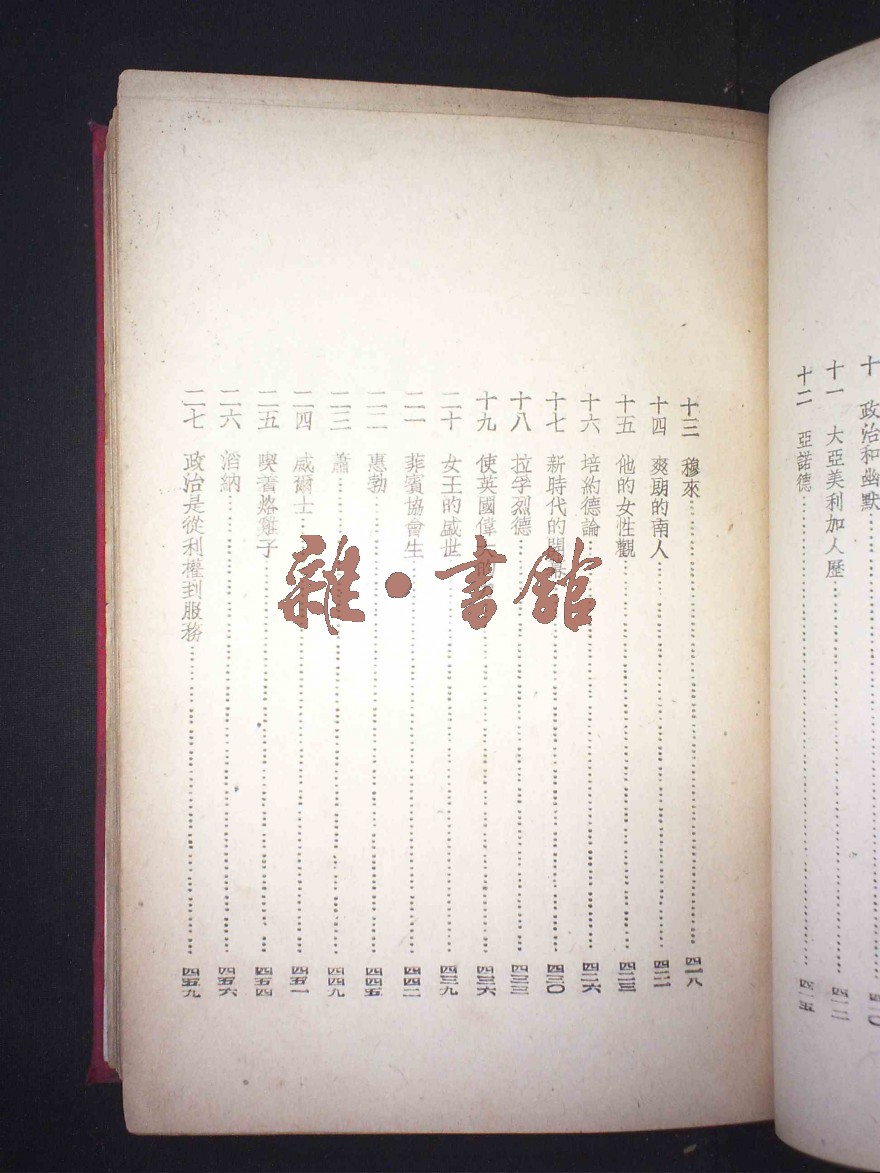 十 政治和幽默……四一〇
十一 大亞美利加人歷……四一二
十二 亞諾德……四一五
十三 穆來……四一八
十四 爽朗的南人……四二一
十五 他的女性觀……四二三
十六 培約德論……四二六
十七 新時代的開……四三〇
十八 拉孚烈德……四三三
十九 使英國偉大的……四三六
二十 女王的盛世……四三九
二一 菲賓協會生……四四二
二二 惠勃……四四五
二三 蕭……四四九
二四 威爾士……四五一
二五 喫着烙雞子……四五四
二六 滔納……四五六
二七 政治是從利權到服務……四五九
雜·書館